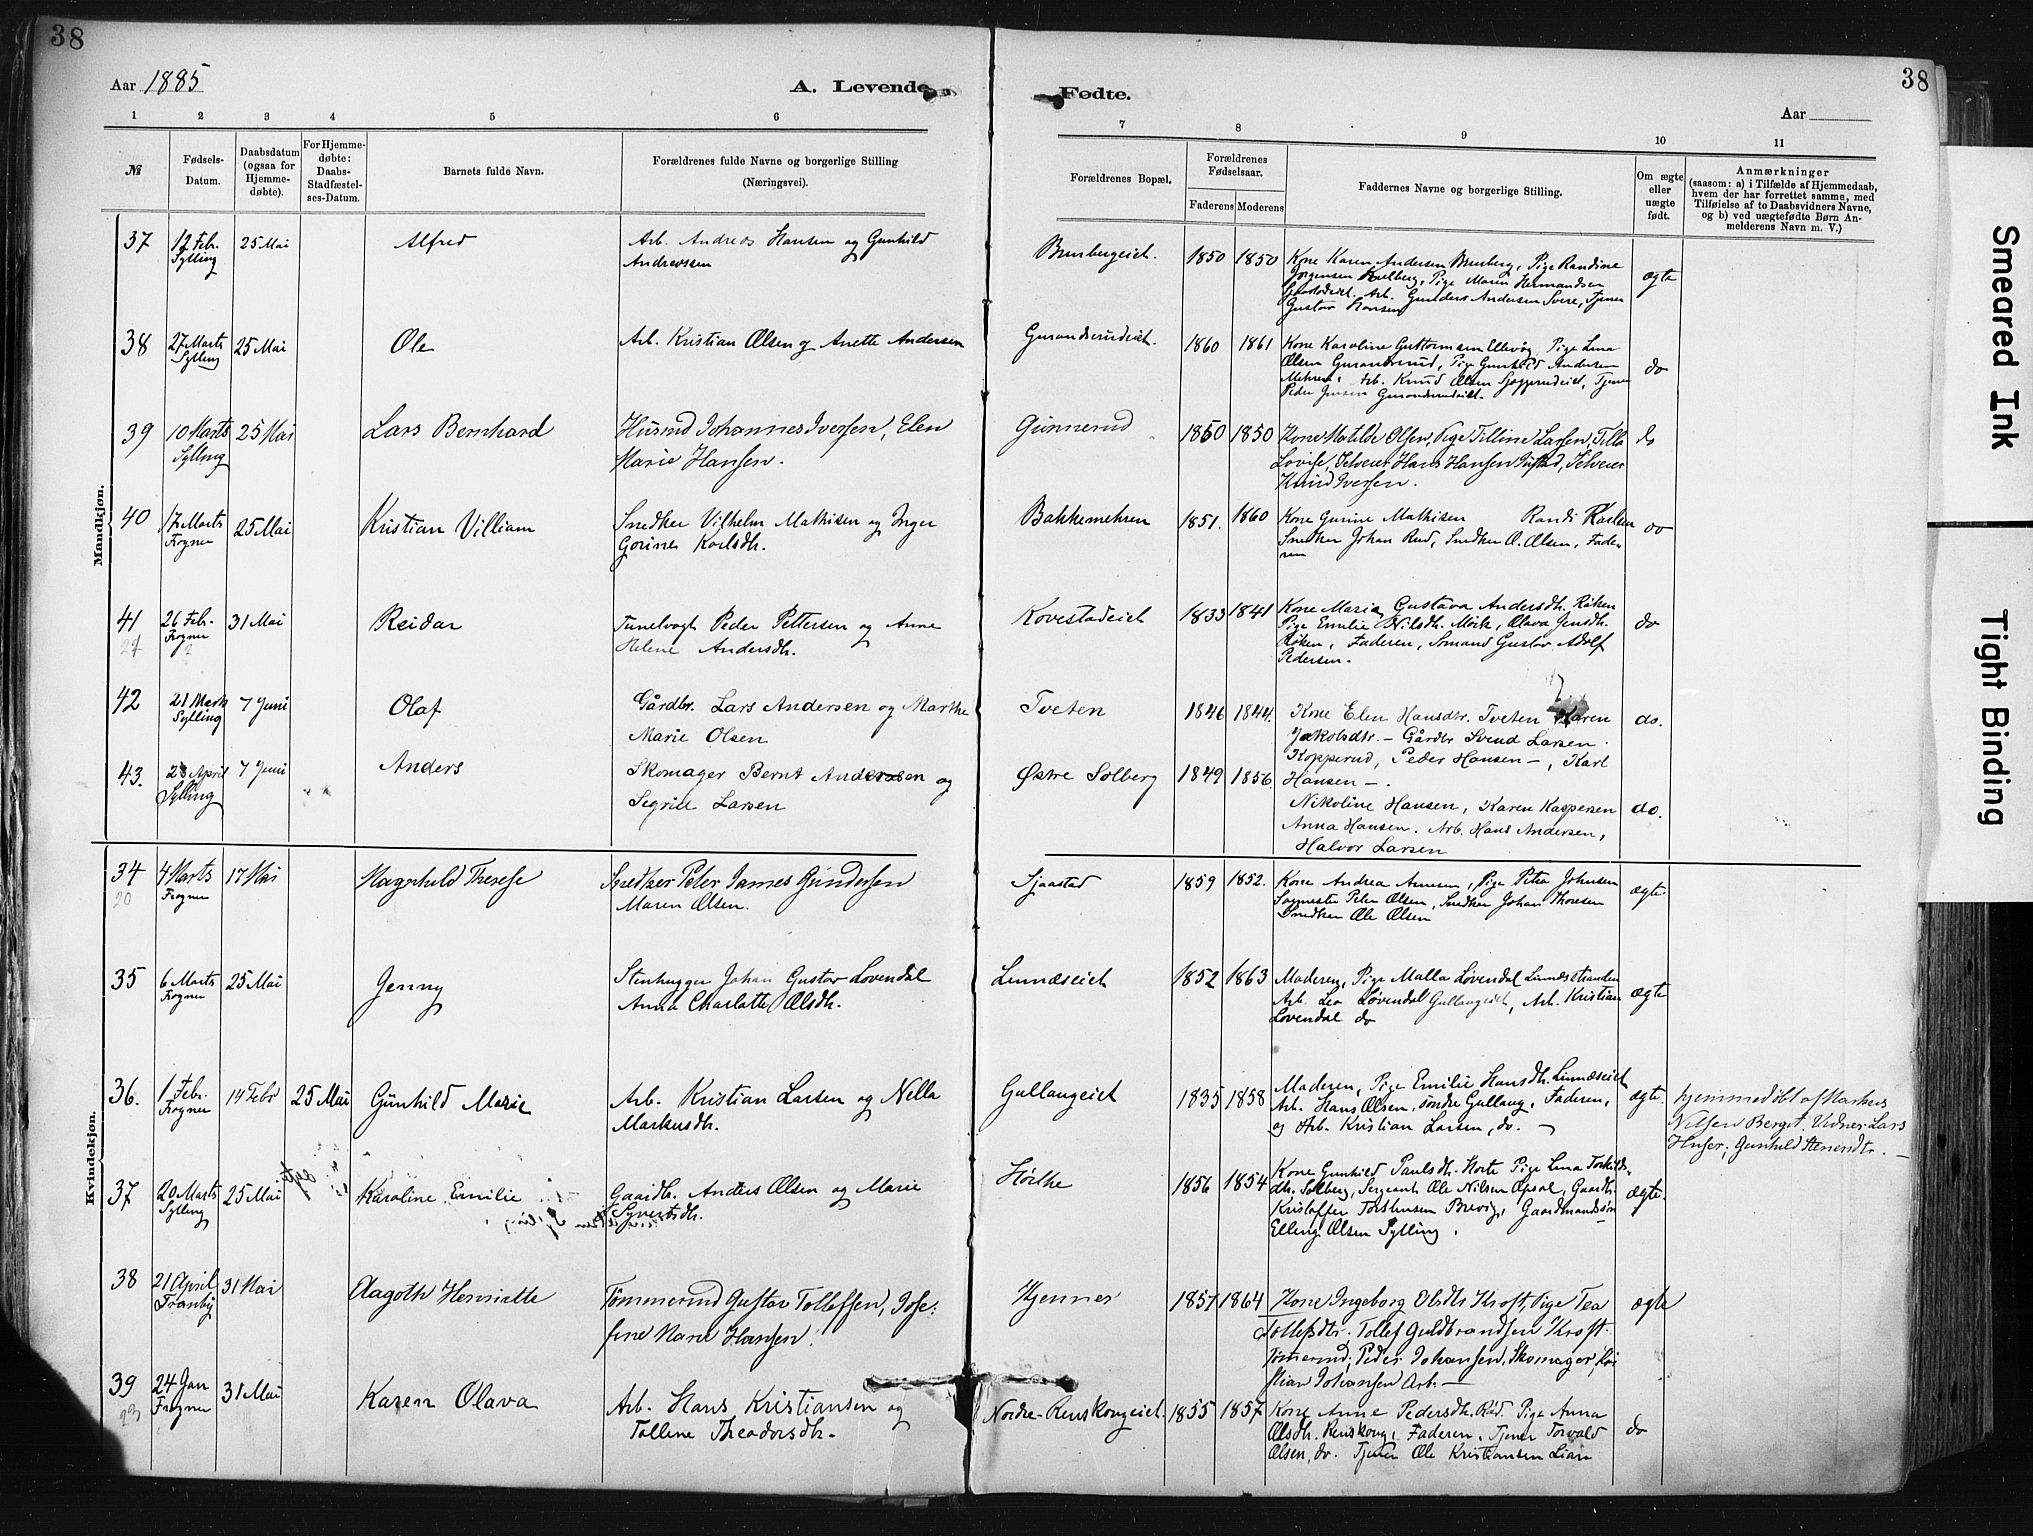 38
38
Aar 1885
A. Levende
Fødte.
Aar
1 2 3 4 5 6 7 8 9 10 11
№
Fødsels-
Datum.
Daabsdatum
(ogsaa for
Hjemme-
døbte).
For Hjemme-
døbte:
Daabs-
Stadfæstel-
ses-Datum.
Barnets fulde Navn.
Forældrenes fulde Navne og borgerlige Stilling
(Næringsvei).
Forældrenes Bopæl.
Forældrenes
Fødselsaar.
Faderens Moderens
Faddernes Navne og borgerlige Stilling.
Om ægte
eller
uægte
født.
Anmærkninger
(saasom: a) i Tilfælde af Hjemmedaab,
hvem der har forrettet samme, med
Tilføielse af to Daabsvidners Navne,
og b) ved uægtefødte Børn An-
melderens Navn m. V.)
Mandkjøn.
37
12 Feb.
Sylling
25 Mai
Alfred
Arb. Andreas Hansen og Gunhild
Andreassen
1850 1850
Kone Karen Andersen Burberg, Pige Randine
Jørgensen Pige Maren Hermandsen
Arb. Gunders Andersen Svere, Tjener
Gustav Hansen
ægte
38
27 Marts
Sylling
25 Mai
Ole
Arb. Kristian Olsen og Anette Andersen
Gunanderudeiet.
1860 1861
Kone Karoline Guttormsen Ellevog, Pige Lina
Olsen Pige Gunhild Andersen
Mehren, Arb. Knud Olsen Tjener
Peder Jensen
do
39
10 Marts
Sylling
25 Mai
Lars Bernhard
Husmd Johannes Iversen, Elen
Marie Hansen.
Gunnerud
1850 1850
Kone Matilde Olsen, Pige Tilline Larsen, Tilla
Lovise, Selveier Hans Hansen Selveier
Knud Iversen.
do
40
17 Marts
Frogner
25 Mai
Kristian Villiam
Snedker Vilhelm Mathisen og Inger
Gorine Karlsdh.
Bakkemehren
1851. 1860
Kone Gurine Mathisen Randi Karlsen
Snedker Johan Rud, Snedker O. Olsen, Fade-
ren
do
41
27
26 Feb.
Frogner
?
31 Mai
Reidar
Tunelvogt Peder Pettersen og Anne
Helene Andersdh.
Kovestadeiet
1833 1841
Kone Maria Gustava Andersdh. Røken
Pige Emilie Nilsdh. Mørk, Olava Jensdh.
Røken, Faderen, Sømand Gustav Adolf
Pedersen.
do
42
21 Marts
Sylling
7 Juni
Olaf
Gårdbr. Lars Andersen og Marthe
Marie Olsen
Tveten
1846 1844.
Kone Elen Hansdtr. Tveten Karen
Jakobsdtr. – Gårdbr Svend Larsen
Kopperud, Peder Hansen –, Karl
Hansen –.
do.
43.
23 April
Sylling
7 Juni
Anders
Skomager Bernt Andersen og
Segrid Larsen
Østre Solberg
1849 1856.
Nikoline Hansen, Karen Kaspersen
Anna Hansen. Arb. Hans Andersen,
Halvor Larsen
do.
Kvindekjøn.
34
20
4 Marts
Frogner
17 Mai
Magnhild Therese
Snedker Peter James Gundersen
Maren Olsen.
Sjaastad
1859 1852.
Kone Andrea Arnesen, Pige Petra Johnsen
Sagmester Peter Olsen, Snedker Johan Thoresen
Snedker Ole Olsen
ægte.
35
6 Marts
Frogner
25 Mai
Jenny
Stenhugger Johan Gustav Lovendal
Anna Charlotte Olsdh.
Linnæseiet
1852 1863
Maderen, Pige Malla Løvendal Linnæsstranden
Arb. Leo Løvendal Gullaugeiet, Arb. Kristian
Lovendal do
ægte
36.
1 Feb.
Frogner
14 Febr
25 Mai
Gunhild Marie
Arb. Kristian Larsen og Nella
Markusdh.
Gullaugeiet
1835 1858
Maderen, Pige Emilie Hansdh. Linnæseiet
Arb. Hans Olsen, søndre Gullaug, Faderen,
og Arb. Kristian Larsen, do. –
ægte.
hjemmedøbt af Markus
Nilsen Berget. Vidner: Lars
Huser, Gunhild Stenendtr. –
37
20 Marts
Sylling
25 Mai
Karoline Emilie
Gaardb. Anders Olsen og Marie
Syvertsdh.
Hørtke
1856 1854
Kone Gunhild Paulsdh. Horte Pige Lina Torkilds-
dh. Solberg, Sergeant Ole Nilsen Opsal, Gaardb.
Kristoffer Torstensen Brevig, Gaardmandssøn
Elling Olsen Sylling.
ægte.
38
21 April
Tranby
31 Mai
Aagoth Henriette
Tømmermd Gustav Tollefsen, Jose-
fine Marie Hansen.
Kjenner
1857 1864
Kone Ingeborg Olsdtr Kroft, Pige Tea
Tollefsdtr. Tollef Guldbrandsen Kroft
Tømmermd, Peder Johansen, Skomager, Kri
stian Johansen Arb. –
ægte
39
23
24 Jan
Frogner
31 Mai
Karen Olava
Arb. Hans Kristiansen og
Tolline Theodorsdh.
Nordre-Renskougeiet.
1855 1857
Kone Anne Pedersdh. Rød. Pige Anna
Olsdh. Renskoug, Faderen, Tjener Torvald
Olsen, do. Tjener Ole Kristiansen Lian
do
Smeared Ink
Tight Binding